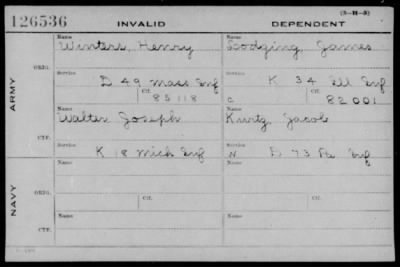 (3-H-5)
126536 INVALID DEPENDENT
Name Name
Winters, Henry Dodging, James
ORIG.
Service Service
D 49 Mass Inf K 34 Ill Inf
Ctf. Ctf.
85118 C 82001
ARMY
Name Name
Walter Joseph Kurtz, Jacob
CTF.
Service Service
K 18 Mich Inf W D 73 Pa Inf
Name Name
NAVY
ORIG.
Service Ctf. Service Ctf.
Name Name
CTF.
Service Service